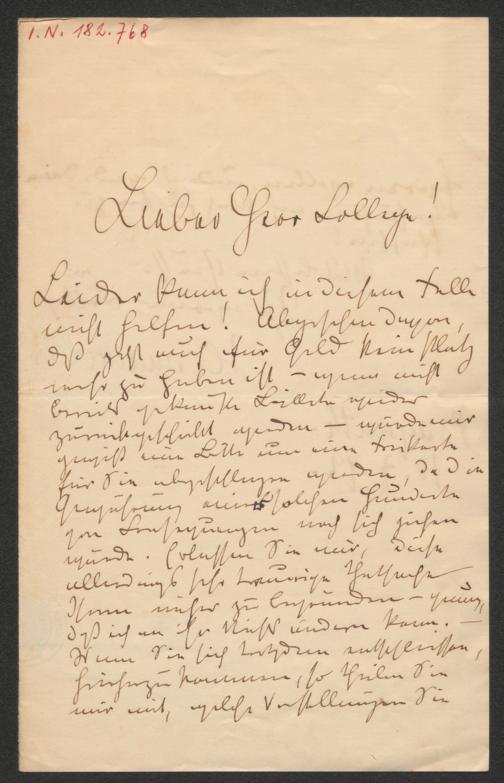 I.N. 182.768
Lieber Herr College!
Leider kann ich in diesem Falle
nicht helfen! Abgesehen davon,
daß jetzt auch für Geld kein Platz
mehr zu haben ist – wenn nicht
bereits gekaufte Billets wieder
zurückgeschickt werden – würde mir
gewiß eine Bitte um eine Freikarte
für Sie abgeschlagen werden, da die
Gewährung einer solchen Hunderte
von Consequenzen nach sich ziehen
würde. Erlassen Sie mir, diese
allerdings sehr traurige Thatsache
Ihnen näher zu begründen – genug,
daß ich an ihr nichts ändern kann. –
Wenn Sie sich trotzdem entschließen,
hierherzukommen, so theilen Sie
mir mit, welche Vorstellungen Sie